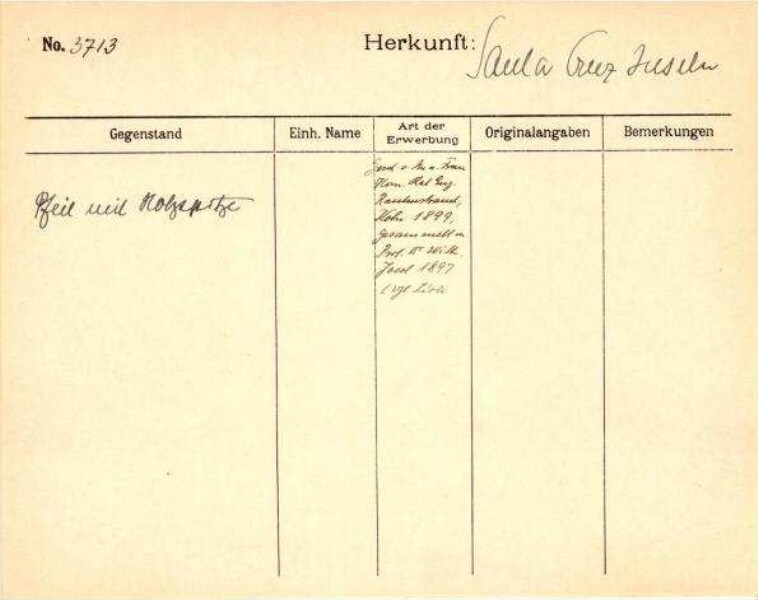 No. 3713
Herkunft: Santa Cruz Inseln
Gegenstand
Einh. Name
Art der Erwerbung
Originalangaben
Bemerkungen
Pfeil mit Holzspitze
Gesch. v. u. Frau
Kom. Rat Eug.
Rautenstrauch,
Köln 1899,
gesammelt v.
Prof. Dr Wilh.
Joest 1897